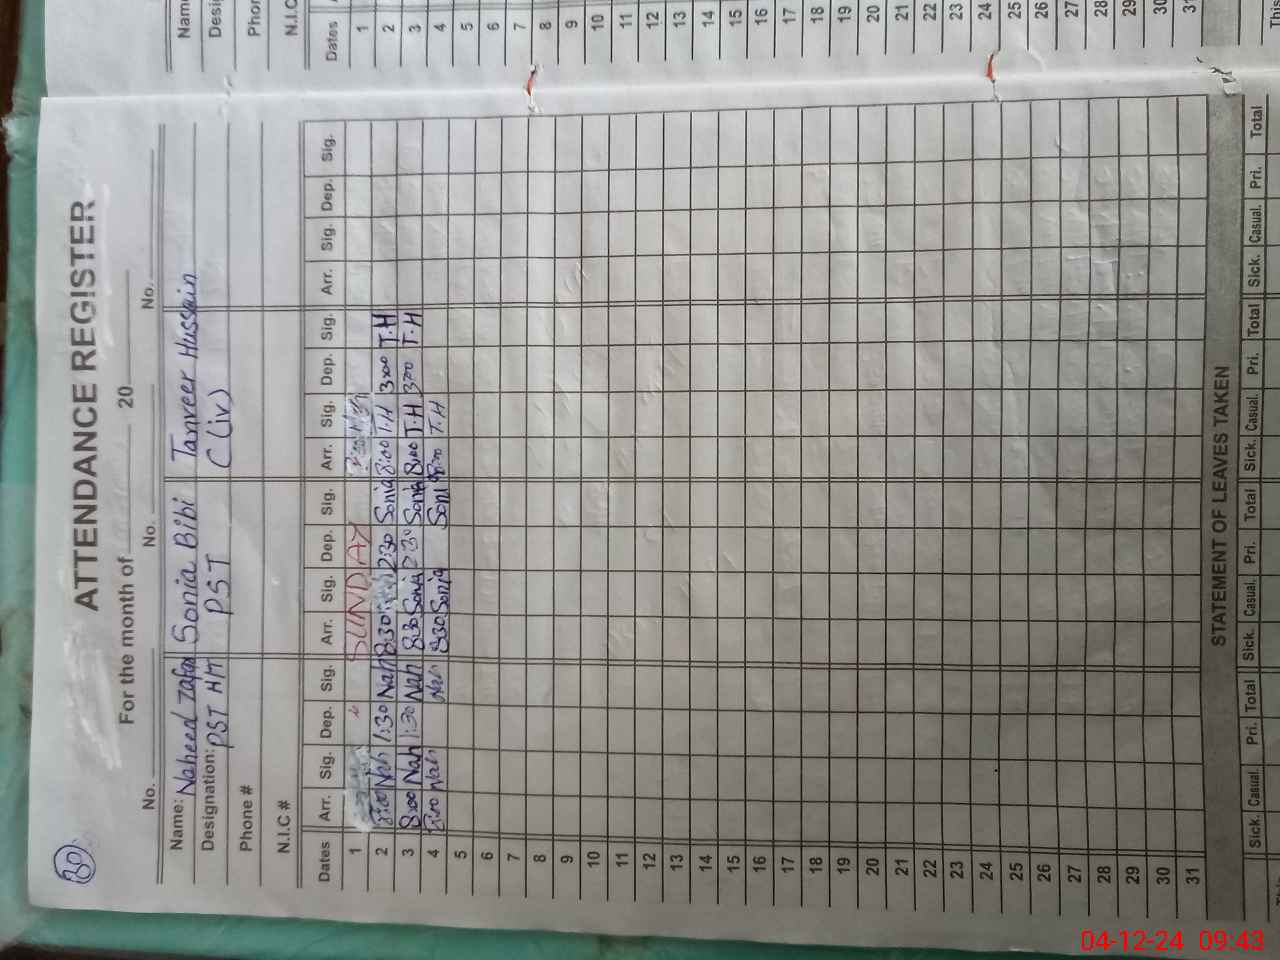 30
ATTENDANCE REGISTER
For the month of 20
No. No. No. No.
Name: Naheed Zafar Sonia Bibi Tanveer Hussain
Designation: PST HM PST C (iv)
Phone #
N.I.C #
Dates Arr. Sig. Dep. Sig. Arr. Sig. Dep. Sig. Arr. Sig. Dep. Sig. Arr. Sig. Dep. Sig.
1 SUNDAY
2 8:00 Nah 1:30 Nah 8:30 2:30 Sonia 8:00 T.H 3:00 T.H
3 8:00 Nah 1:30 Nah 8:30 Sonia 2:30 Sonia 8:00 T.H 3:00 T.H
4 8:00 Nah Nah 8:30 Sonia Soni 8:00 T.H
5
6
7
8
9
10
11
12
13
14
15
16
17
18
19
20
21
22
23
24
25
26
27
28
29
30
31
STATEMENT OF LEAVES TAKEN
Sick. Casual. Pri. Total Sick. Casual. Pri. Total Sick. Casual. Pri. Total Sick. Casual. Pri. Total
Name
Desig
Phon
N.I.C
Dates
1
2
3
4
5
6
7
8
9
10
11
12
13
14
15
16
17
18
19
20
21
22
23
24
25
26
27
28
29
30
31
This
04-12-24 09:43